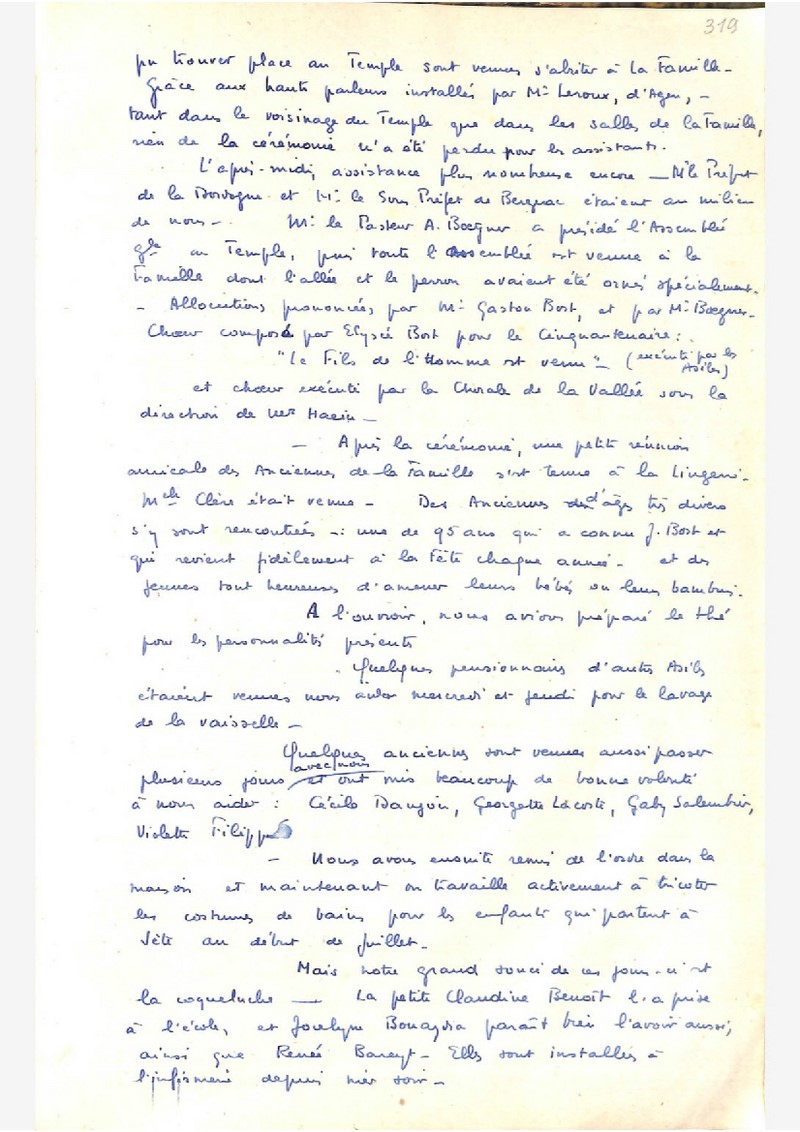 319
pu trouver place au Temple sont venues s'abriter à la Famille -
Grâce aux hauts parleurs installés par Mr Leroux, d'Agen, -
tant dans le voisinage du Temple que dans les salles de la Famille,
rien de la cérémonie n'a été perdu pour les assistants.
L'après-midi, assistance plus nombreuse encore - Mr le Préfet
de la Dordogne et Mr le Sous Préfet de Bergerac étaient au milieu
de nous - Mr le Pasteur A. Boegner a présidé l'Assemblée
gle au Temple, puis toute l'Assemblée est venue à la
Famille dont l'allée et le perron avaient été ornés spécialement.
- Allocutions prononcées par Mr Gaston Bost, et par Mr Boegner -
Chœur composé par Elysée Bost pour le Cinquantenaire :
"Le Fils de l'Homme est venu" - (exécuté par les
Asiles)
et chœur exécuté par la Chorale de la Vallée sous la
direction de
- Après la cérémonie, une petite réunion
amicale des Anciennes de la Famille s'est tenue à la Lingerie -
Melle Claire était venue - Des Anciennes d'âges très divers
s'y sont rencontrées - : une de 95 ans qui a connu J. Bost et
qui revient fidèlement à la Fête chaque année - et des
jeunes tout heureuses d'amener leurs bébés ou leurs bambins.
A l'ouvroir, nous avions préparé le thé
pour les personnalités présentes
- Quelques pensionnaires d'autres Asiles
étaient venues nous aider mercredi et jeudi pour le lavage
de la vaisselle -
Quelques anciennes sont venues aussi passer
plusieurs jours avec nous et ont mis beaucoup de bonne volonté
à nous aider : Cécile Georgette Lacoste, Gaby
Violette
- Nous avons ensuite remis de l'ordre dans la
maison et maintenant on travaille activement à tricoter
les costumes de bains pour les enfants qui partent à
Sète au début de Juillet -
Mais notre grand souci de ces jours-ci est
la coqueluche - La petite Claudine Benoît l'a prise
à l'école, et Jocelyne paraît bien l'avoir aussi,
ainsi que Renée - Elles sont installées à
l'infirmerie depuis hier soir -